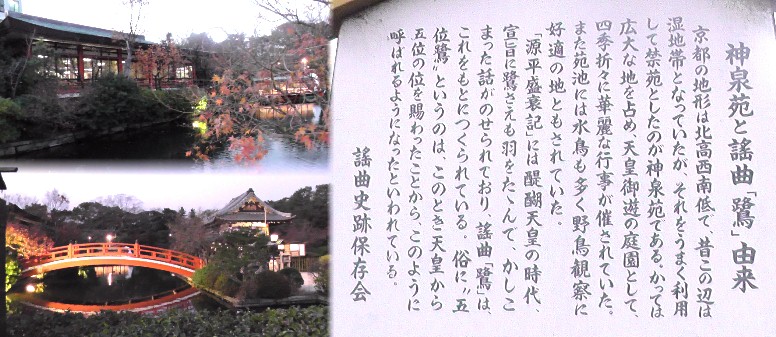 神泉苑と謡曲「鷺」由来
京都の地形は北高西南低で、昔この辺は
湿地帯となっていたが、それをうまく利用
して禁苑としたのが神泉苑である。かつては
広大な地を占め、天皇御遊の庭園として、
四季折々に華麗な行事が催されていた。
また苑池には水鳥も多く野鳥観察に
好適の地ともされていた。
「源平盛衰記」には醍醐天皇の時代、
宣旨に鷺さえも羽をたゝんで、かしこ
まった話がのせられており、謡曲「鷺」は、
これをもとにつくられている。俗に"五
位鷺"というのは、このとき天皇から
五位の位を賜わったことから、このように
呼ばれるようになったといわれている。
謡曲史跡保存会